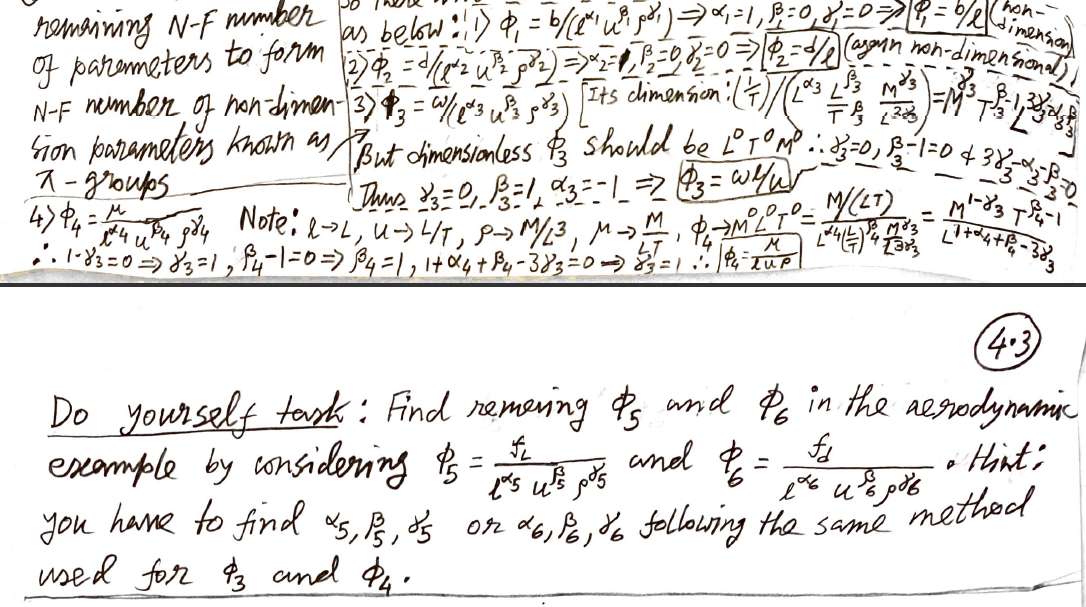 remaining N-F number
of parameters to form
N-F number of non-dimen-
sion parameters known as
π-groups
as below: 1) ϕ₁ = b/(l^α₁ u^β₁ ρ^γ₁) ⇒ α₁=1, β₁=0, γ₁=0 ⇒ ϕ₁ = b/l (non-dimension)
2) ϕ₂ = d/(l^α₂ u^β₂ ρ^γ₂) ⇒ α₂=1, β₂=0, γ₂=0 ⇒ ϕ₂ = d/l (again non-dimensional)
3) ϕ₃ = ω/(l^α₃ u^β₃ ρ^γ₃) [Its dimension: (1/T)/(L^α₃ L^β₃/T^β₃ M^γ₃/L^3γ₃) = M^γ₃ T^β₃-1 L^3γ₃-α₃-β₃]
But dimensionless ϕ₃ should be L⁰T⁰M⁰ ∴ γ₃=0, β₃-1=0 & 3γ₃-α₃-β₃=0
Thus γ₃=0, β₃=1, α₃=-1 ⇒ ϕ₃ = ωl/u
4) ϕ₄ = μ/(l^α₄ u^β₄ ρ^γ₄) Note: l→L, u→L/T, ρ→M/L³, μ→M/LT, ϕ₄→M⁰L⁰T⁰ = M/(LT) / (L^α₄ (L/T)^β₄ M^γ₃/L^3γ₃) = M^1-γ₃ T^β₄-1 / L^1+α₄+β₄-3γ₃
∴ 1-γ₃=0 ⇒ γ₃=1, β₄-1=0 ⇒ β₄=1, 1+α₄+β₄-3γ₃=0 ⇒ γ₃=1 ∴ ϕ₄ = μ/(luρ)
4.3
Do yourself task: Find remaning ϕ₅ and ϕ₆ in the aerodynamic
example by considering ϕ₅ = f_L/(l^α₅ u^β₅ ρ^γ₅) and ϕ₆ = f_d/(l^α₆ u^β₆ ρ^γ₆). Hint:
you have to find α₅, β₅, γ₅ or α₆, β₆, γ₆ following the same method
used for ϕ₃ and ϕ₄.